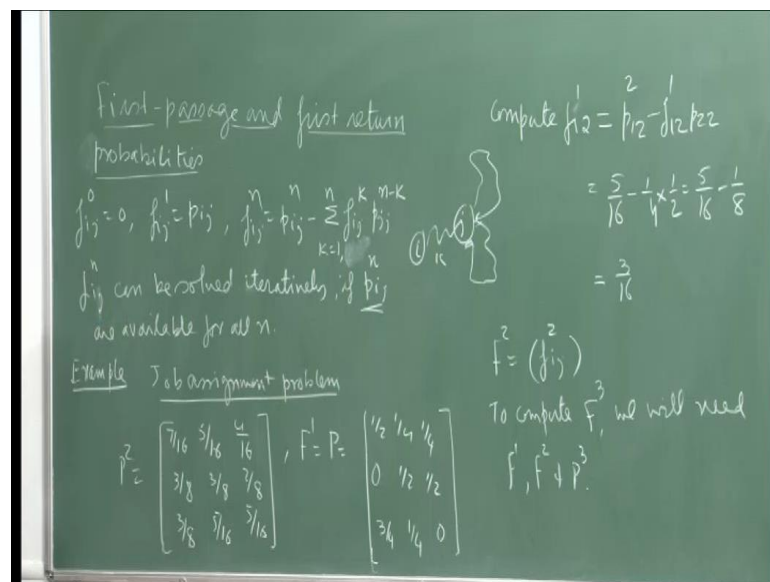 First-passage and first return
probabilities
f_{ij}^0 = 0, f_{ij}^1 = p_{ij}, f_{ij}^n = p_{ij}^n - \sum_{k=1}^{n} f_{ij}^k p_{jj}^{n-k}
f_{ij}^n can be solved iteratively, if p_{ij}^n
are available for all n.
i k j
Example Job assignment problem
P^2 = [ 7/16 5/16 4/16
3/8 3/8 2/8
3/8 5/16 5/16 ]
, F^1 = P = [ 1/2 1/4 1/4
0 1/2 1/2
3/4 1/4 0 ]
Compute f_{12}^1 = p_{12}^2 - f_{12}^1 p_{22}
= 5/16 - 1/4 × 1/2 = 5/16 - 1/8
= 3/16
F^2 = (f_{ij}^2)
To compute F^3, we will need
F^1, F^2 & P^3.